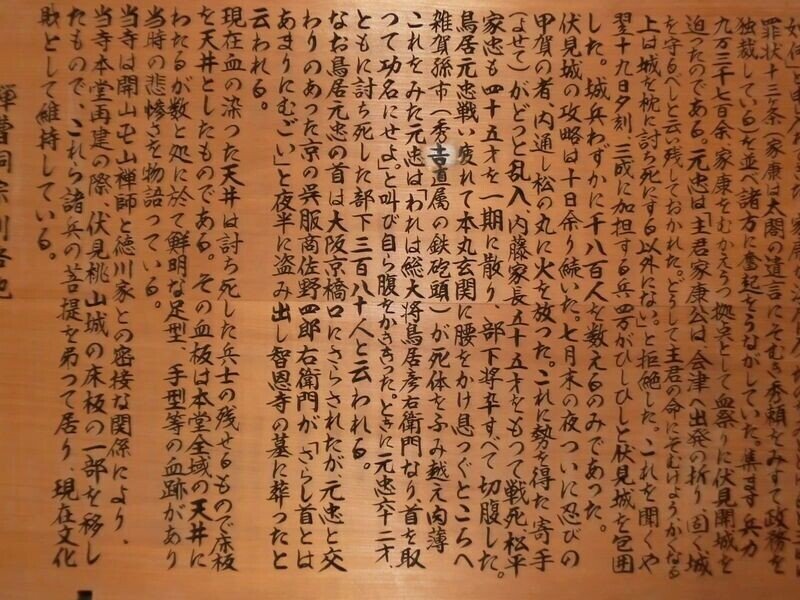 罪状十三ヶ条(家康は太閤の遺言にそむき秀頼をみすて政務を
独裁している)を並べ諸方に奮起をうながしていた。集まる兵力
九万三千七百余、家康をむかえうつ拠点として血祭りに伏見開城を
迫ったのである。元忠は「主君家康公は、会津へ出発の折り、固く城
を守るべしと云い残しておかれた。どうして主君の命にそむけようか、かくなる
上は城を枕に討ち死にする以外にない。」と拒絶した。これを聞くや
翌十九日夕刻、三成に加担する兵四万がひしひしと伏見城を包囲
した。城兵わずかに千八百人を数えるのみであった。
伏見城の攻略は十日余り続いた。七月末の夜ついに忍びの
甲賀の者、内通し松の丸に火を放った。これに勢を得た寄手
(よせて)がどっと乱入、内藤家長五十五才をもって戦死、松平
家忠も四十五才を一期に散り、部下将卒すべて切腹した。
鳥居元忠戦い疲れて本丸玄関に腰をかけ息つぐところへ
雑賀孫市(秀吉直属の鉄砲頭)が死体をふみ越え肉薄
これをみた元忠は「われは総大将鳥居彦右衛門なり、首を取
って功名にせよ。」と叫び自ら腹をかき切った。ときに元忠六十二才、
ともに討ち死した部下三百八十人と云われる。
なお鳥居元忠の首は大阪京橋口にさらされたが元忠と交
わりのあった京の呉服商佐野四郎右衛門が、「さらし首とは
あまりにむごい」と夜半に盗み出し智恩寺の墓に葬ったと
云われる。
現在血の染った天井は討ち死した兵士の残せるもので床板
を天井としたものである。その血板は本堂全域の天井に
わたるが数と処に於て鮮明な足型、手型等の血跡があり
当時の悲惨さを物語っている。
当寺は開山屯山禅師と徳川家との密接な関係により、
当寺本堂再建の際、伏見桃山城の床板の一部を移し
たもので、これら諸兵の菩提を弔って居り、現在文化
財として維持している。